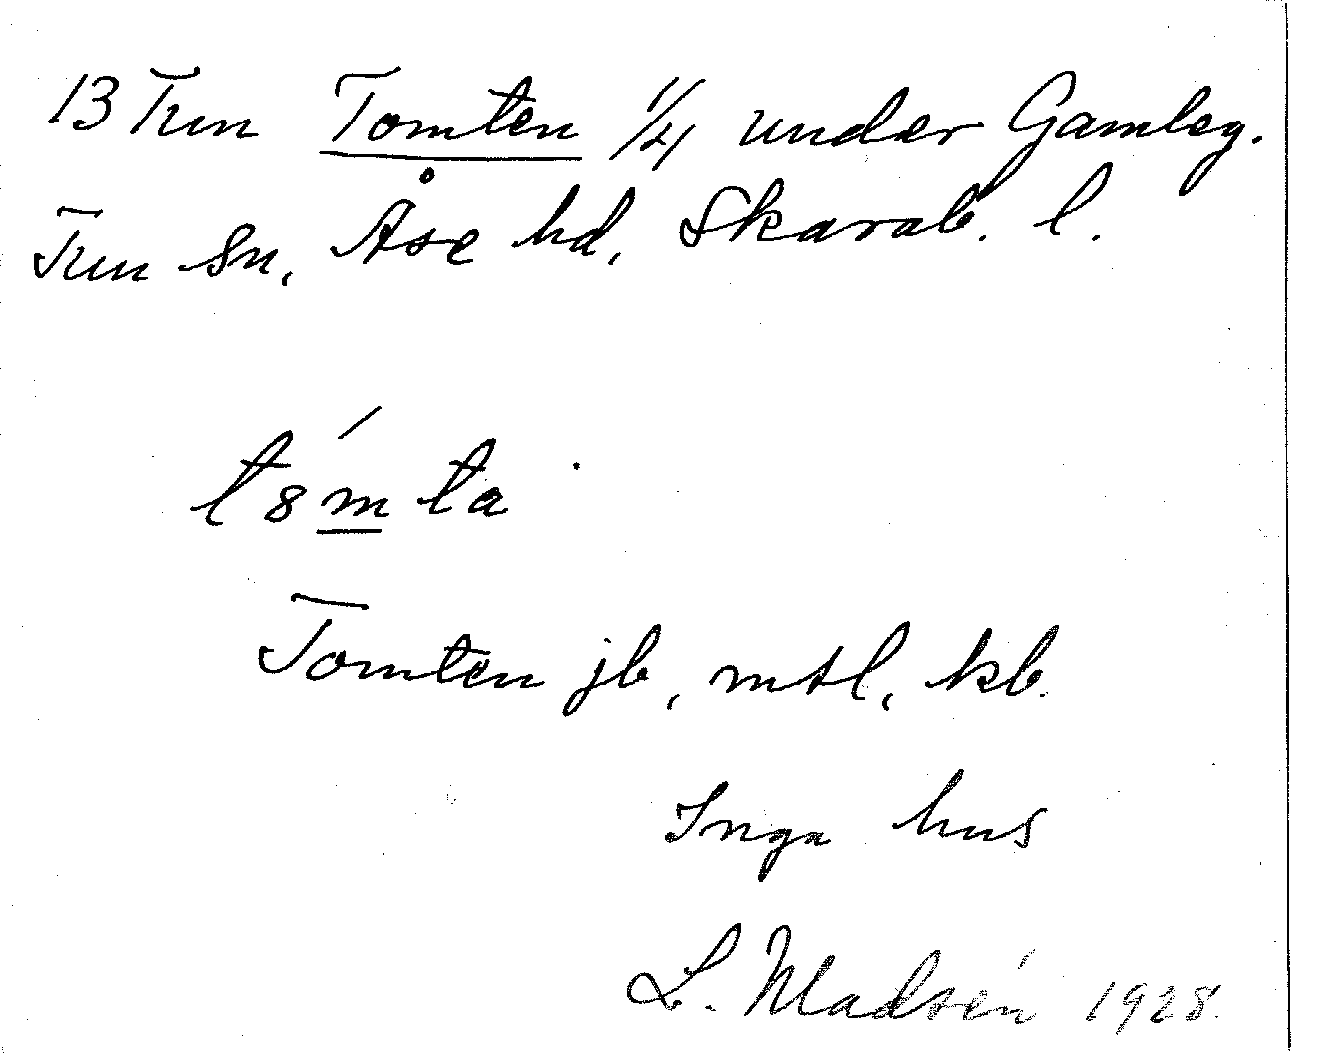 13 Tun Tomten 1/4 under Gamleg.
Tun sn, Åse hd, Skarab. l.
t8́mta
Tomten jb, mtl, kb.
Inga hus
L. Madsén 1928.